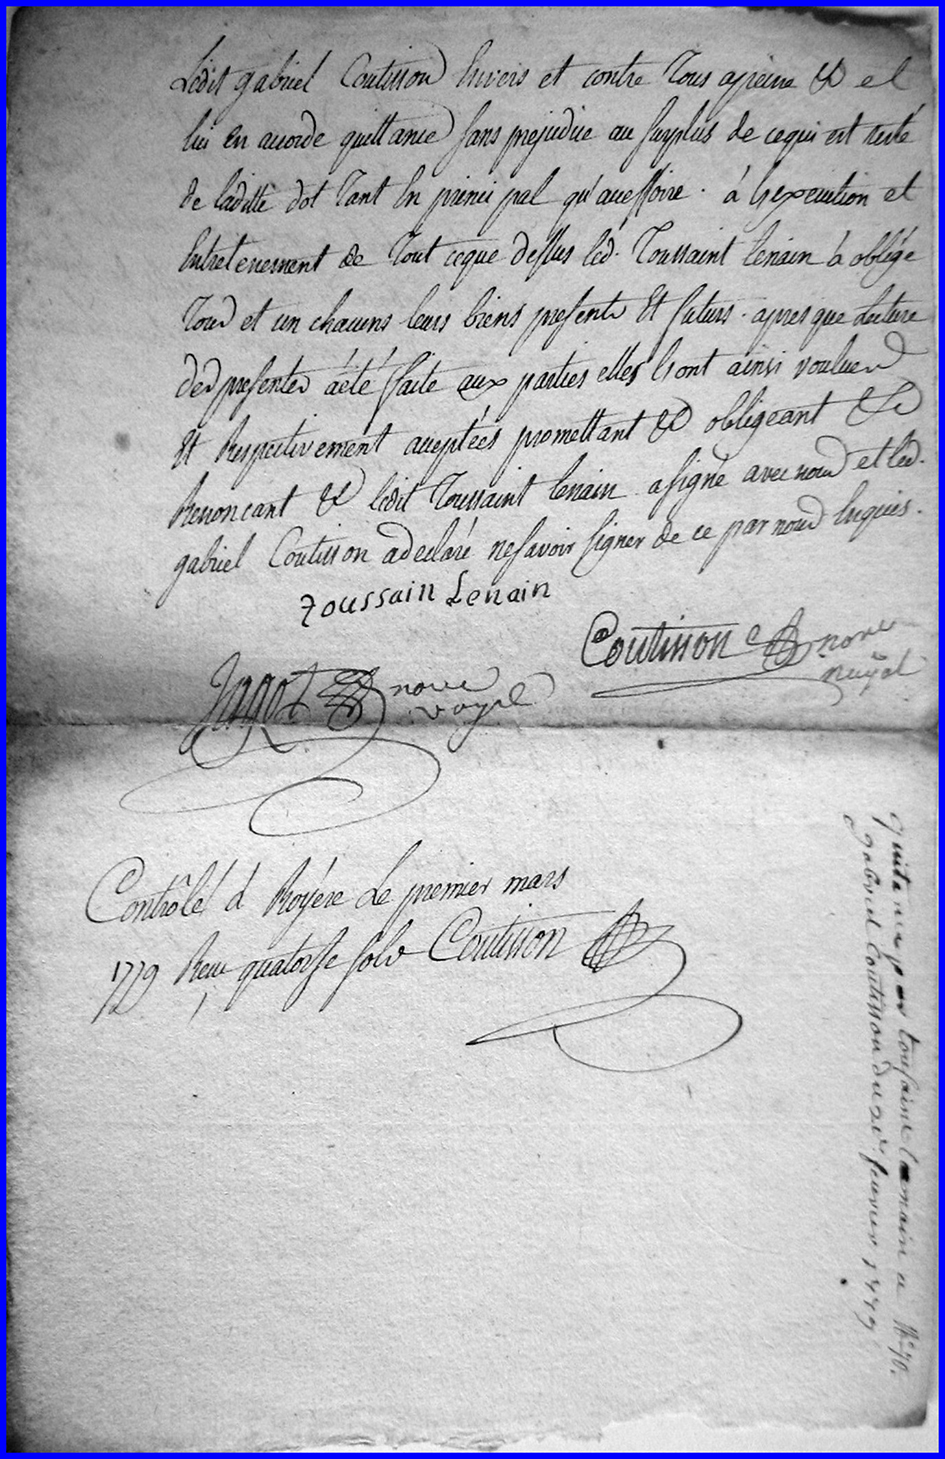 Ledit gabriel Coutisson Envers et contre Tous apeine &c et
lui En acorde quittance Sans prejudice au Surplus de cequi est resté
de laditte dot Tant En principal qu'accessoire. à Lexecution et
Entretenement de Tout ceque dessus led. Toussaint lenain à obligé
Tous et un chacuns leurs biens presents Et futurs. apres que Lecture
des presentes àété faite aux parties elles Lont ainsi voulues
Et Respectivement acceptées promettant &c obligeant &c
Renoncant &c ledit Toussaint lenain a signé avec nous et led.
gabriel Coutisson adeclaré nesavoir signer de ce par nous Enquis.
Toussain Lenain
Coutisson nore
Royal
Jagot nore
royal
Contrôlé à Royére Le premier mars
1779 Reçu quatorse sols Coutisson
quitance par tousaint lenain a
gabriel Coutisson du fevrier 1779
N° 70.